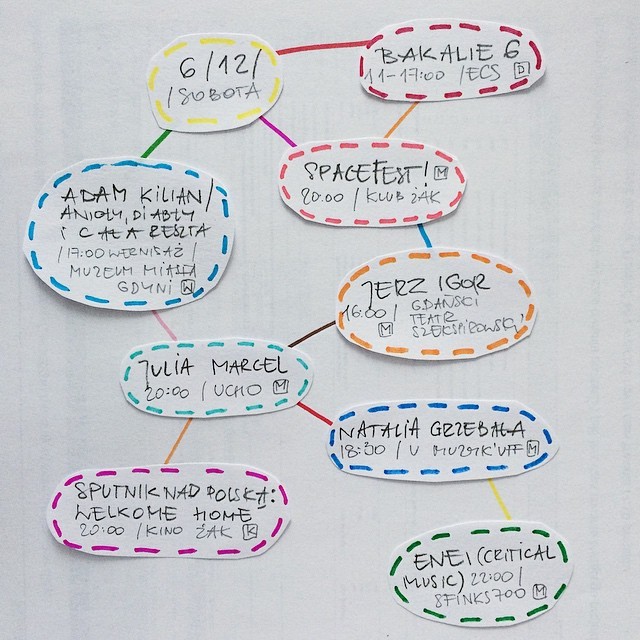 6/12/
/SOBOTA
BAKALIE 6
11-17:00 /ECS D
SPACEFEST! M
20:00 / KLUB ŻAK
ADAM KILIAN/
ANIOŁY, DIABŁY
I CAŁA RESZTA
/17:00 WERNISAŻ/
MUZEUM MIASTA
GDYNI W
JERZ IGOR
16:00/ GDAŃSKI
TEATR
M SZEKSPIROWSKI
JULIA MARCELL
20:00 / UCHO M
NATALIA GRZEBAŁA
18:30 / U MUZYK'UF M
SPUTNIK NAD POLSKĄ:
WELKOME HOME
20:00 /KINO ŻAK K
ENEI (CRITICAL
MUSIC) 22:00/
SFINKS700 M